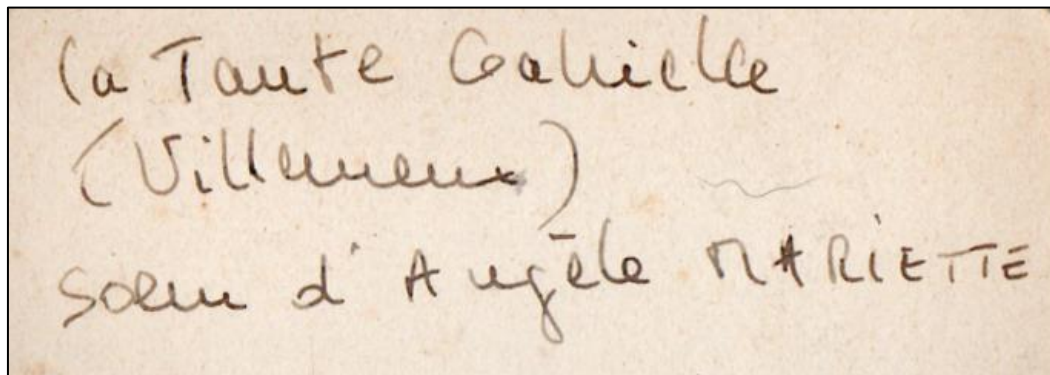 la Tante Gabrielle
(Villemeux)
Soeur d'Angèle MARIETTE